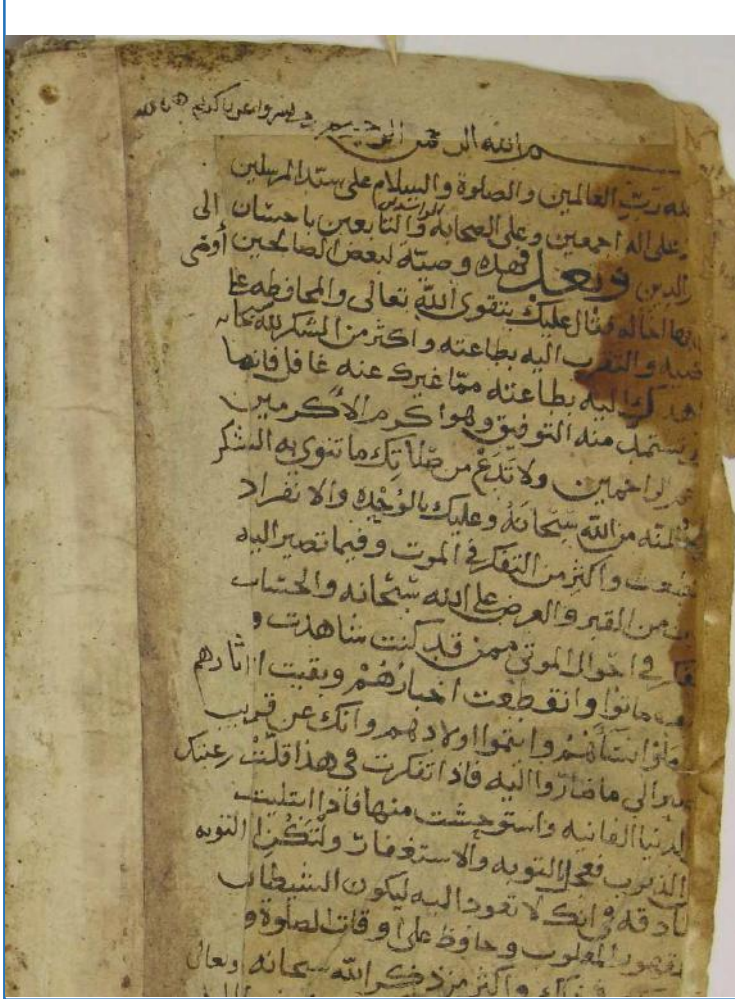 بسم الله الرحمن الرحيم رب يسر واعن يا كريم
لله رب العالمين والصلوة والسلام على سيد المرسلين
وعلى اله اجمعين وعلى الصحابة الراشدين والتابعين باحسان الى
الدين وبعد فهذه وصية لبعض الصالحين أوصى
بها اخا له فقال عليك بتقوى الله تعالى والمحافظه على
والتقرب اليه بطاعته واكثر من الشكر لله
اليه بطاعته ممّا غيرك عنه غافل فانها
تستمد منه التوفيق وهو اكرم الأكرمين
الراحمين ولا تَدَعْ من صلاتك ما تنوي به الشكر
من الله سبحانهُ وعليك بالوُحْدِه والانفراد
واكثر من التفكر في الموت وفيما تصير اليه
من القبر والعرض على الله سبحانه والحساب
في احوال الموتى ممن قد كنت شاهدت و
ماتوا وانقطعت اخبارُهُمْ وبقيت اثارهم
نسآؤهُمْ وايتموا اولادهم وانك عن قريب
الى ما صاروا اليه فاذا تفكرت في هذا قلّتْ رغبتك
الدنيا الفانيه واستوحشت منها فاذا ابتليت
فعجل التوبه والاستغفار ولتكُن التوبه
في انك لا تعود اليه ليكون الشيطان
المغلوب وحافظ على اوقات الصلوة و
واكثر من ذكر الله سبحانه وتعالى